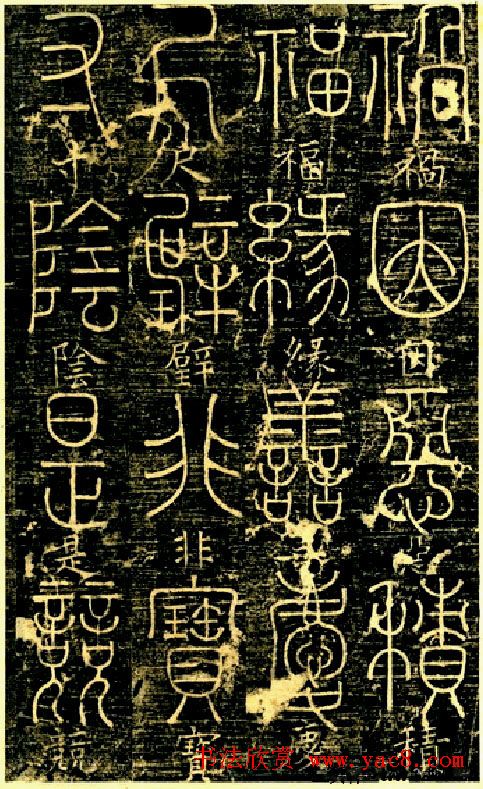 禍禍因因惡惡積積
福福緣緣善善慶慶
尺尺璧璧非非寶寶
寸寸陰陰是是競競
书法欣赏 www.yac8.com